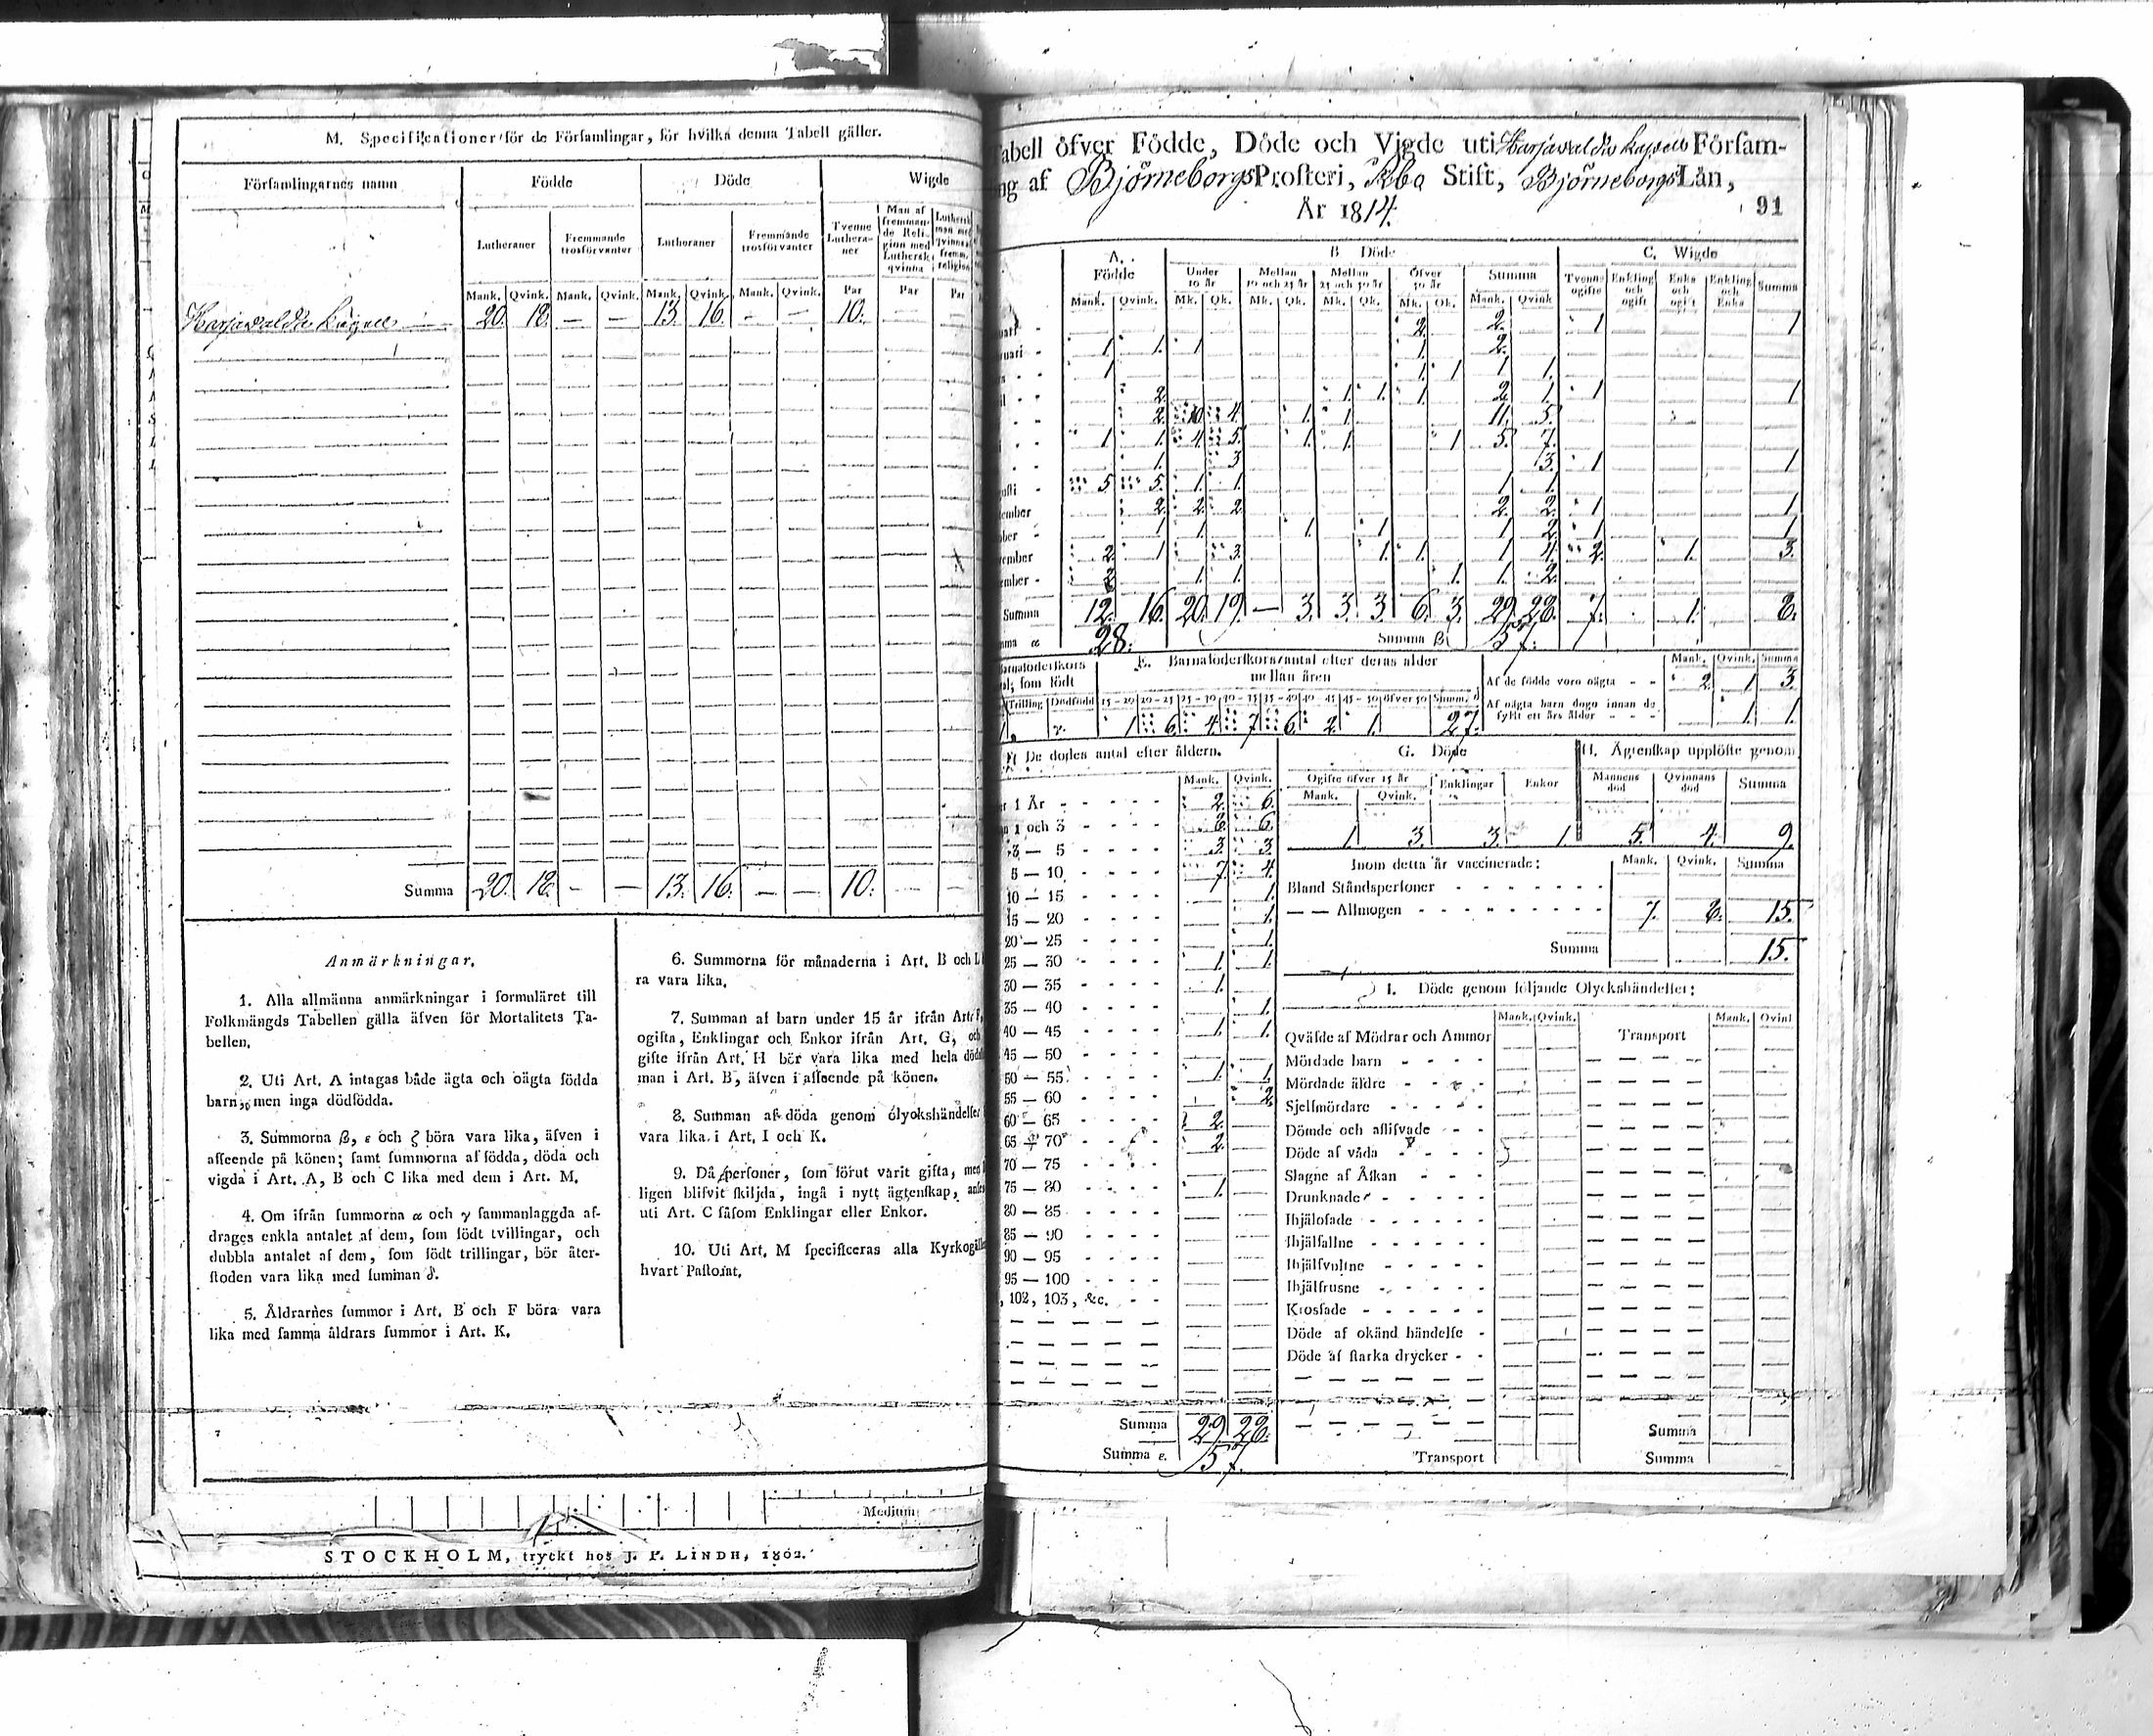 M. Specificationer för de Församlingar, för hvilka denna Tabell gäller.
Församlingarnes namn Födde Döde Wigde
Lutheraner Fremmande trosförvanter Lutheraner Fremmande trosförvanter Tvenne Lutheraner Man af fremmande Religion med Luthersk qvinna
Mank. Qvink. Mank. Qvink. Mank. Qvink. Mank. Qvink. Par Par Par
Harjavalda 20. 18. — — 13. 16. — — 10. — —
Summa 20. 18. — — 13. 16. — — 10. — —
Anmärkningar.
1. Alla allmänna anmärkningar i formuläret till
Folkmängds Tabellen gälla äfven för Mortalitets Ta-
bellen.
2. Uti Art. A intagas både ägta och oägta födda
barn, men inga dödfödda.
3. Summorna β, ε och ζ böra vara lika, äfven i
afseende på könen; samt summorna af födda, döda och
vigda i Art. A, B och C lika med dem i Art. M.
4. Om ifrån summorna α och γ sammanlaggda af-
drages enkla antalet af dem, som födt tvillingar, och
dubbla antalet af dem, som födt trillingar, bör åter-
stoden vara lika med summan δ.
5. Åldrarnes summor i Art. B och F böra vara
lika med samma åldrars summor i Art. K.
6. Summorna för månaderna i Art. B och L
ra vara lika.
7. Summan af barn under 15 år ifrån Art. F,
ogifta, Enklingar och Enkor ifrån Art. G, och
gifte ifrån Art. H bör vara lika med hela död
man i Art. B, äfven i afseende på könen.
8. Summan af döda genom olyckshändelser
vara lika i Art. I och K.
9. Då personer, som förut varit gifta, med
ligen blifvit skiljda, ingå i nytt ägtenskap, anses
uti Art. C såsom Enklingar eller Enkor.
10. Uti Art. M specificeras alla Kyrkogäll
hvart Pastorat.
Medium
STOCKHOLM, tryckt hos J. P. LINDH, 1802.
abell öfver Födde, Döde och Vigde uti Harjavalda Kapells Försam-
ng af Björneborgs Prosteri, Åbo Stift, Björneborgs Län,
År 1814.
91
A. Födde B Döde C. Wigde
Under 10 år Mellan 10 och 25 år Mellan 25 och 50 år Öfver 50 år Summa Tvenne ogifte Enkling och ogift Enka och ogift Enkling och Enka Summa
Mank. Qvink. Mk. Qk. Mk. Qk. Mk. Qk. Mk. Qk. Mank. Qvink
uari - 2. 2. 1 1
ruari - 1. 1. 1 1. 2.
s - - 1 1. 1 1 1.
il - - 2. 1. 1. 1. 2. 1. 1 1
- - 2. 10 4. 1. 1. 11. 5.
- - 1 1. 4 5. 1. 1. 1 5. 7.
- - 1. 3 3. 1 1
usti - 5 5. 1. 1. 1 1.
tember 2. 2. 2. 2. 2. 1 1
ober - 1 1. 1. 1 1 2. 1 1
vember 2. 1 3. 1. 1. 1 4. 2. 1. 3.
ember - 2 1. 1. 1. 1. 2.
Summa 12. 16. 20. 19. — 3. 3. 3. 6. 3. 29. 28. 7. 1. 8.
ma α 28. Summa β 57.
arnaföderskors
al, som födt
Trilling Dödfödd
E. Barnaföderskors antal efter deras ålder
mellan åren
15-20 20-25 25-30 30-35 35-40 40-45 45-50 öfver 50 Summ. δ
1 6 4. 7 6. 2. 1. 27.
Mank. Qvink. Summa
Af de födde voro oägta - - 2. 1 3.
Af oägta barn dogo innan de
fyllt ett års ålder - - - 1. 1.
F De dödes antal efter åldern.
Mank. Qvink.
r 1 År - - - - - 2. 6.
n 1 och 3 - - - - 8. 6.
3 — 5 - - - - 3. 3.
5 — 10 - - - - 7. 4.
10 — 15 - - - - 1.
15 — 20 - - - - 1.
20 — 25 - - - - 1.
25 — 30 - - - - 1. 1.
30 — 35 - - - - 1.
35 — 40 - - - - 1.
40 — 45 - - - - 1. 1.
45 — 50 - - - -
50 — 55 - - - - 1. 1.
55 — 60 - - - - 2.
60 — 65 - - - - 2.
65 — 70 - - - - 2.
70 — 75 - - - -
75 — 80 - - - - 1.
80 — 85 - - - -
85 — 90 - - - -
90 — 95 - - - -
95 — 100 - - - -
, 102, 103, &c. - -
Summa 29. 28.
Summa ε. 57.
G. Döde
Ogifte öfver 15 år Enklingar Enkor
Mank. Qvink.
1 3. 3. 1
H. Ägtenskap upplöste genom
Mannens död Qvinnans död Summa
5. 4. 9.
Inom detta år vaccinerade: Mank. Qvink. Summa
Bland Ståndspersoner - - - - - - -
— — Allmogen - - - - - - - - - 7. 8. 15.
Summa 15.
I. Döde genom följande Olyckshändelser:
Mank. Qvink. Transport Mank. Qvink
Qväfde af Mödrar och Ammor
Mördade barn - - - - -
Mördade äldre - - - -
Sjelfmördare - - - - -
Dömde och aflifvade - -
Döde af våda - - - -
Slagne af Åskan - - -
Drunknade - - - - -
Ihjälosade - - - - - -
Ihjälfallne - - - - - -
Ihjälsvultne - - - - -
Ihjälfrusne - - - - -
Krossade - - - - - -
Döde af okänd händelse -
Döde af starka drycker - -
Summa
Transport Summa